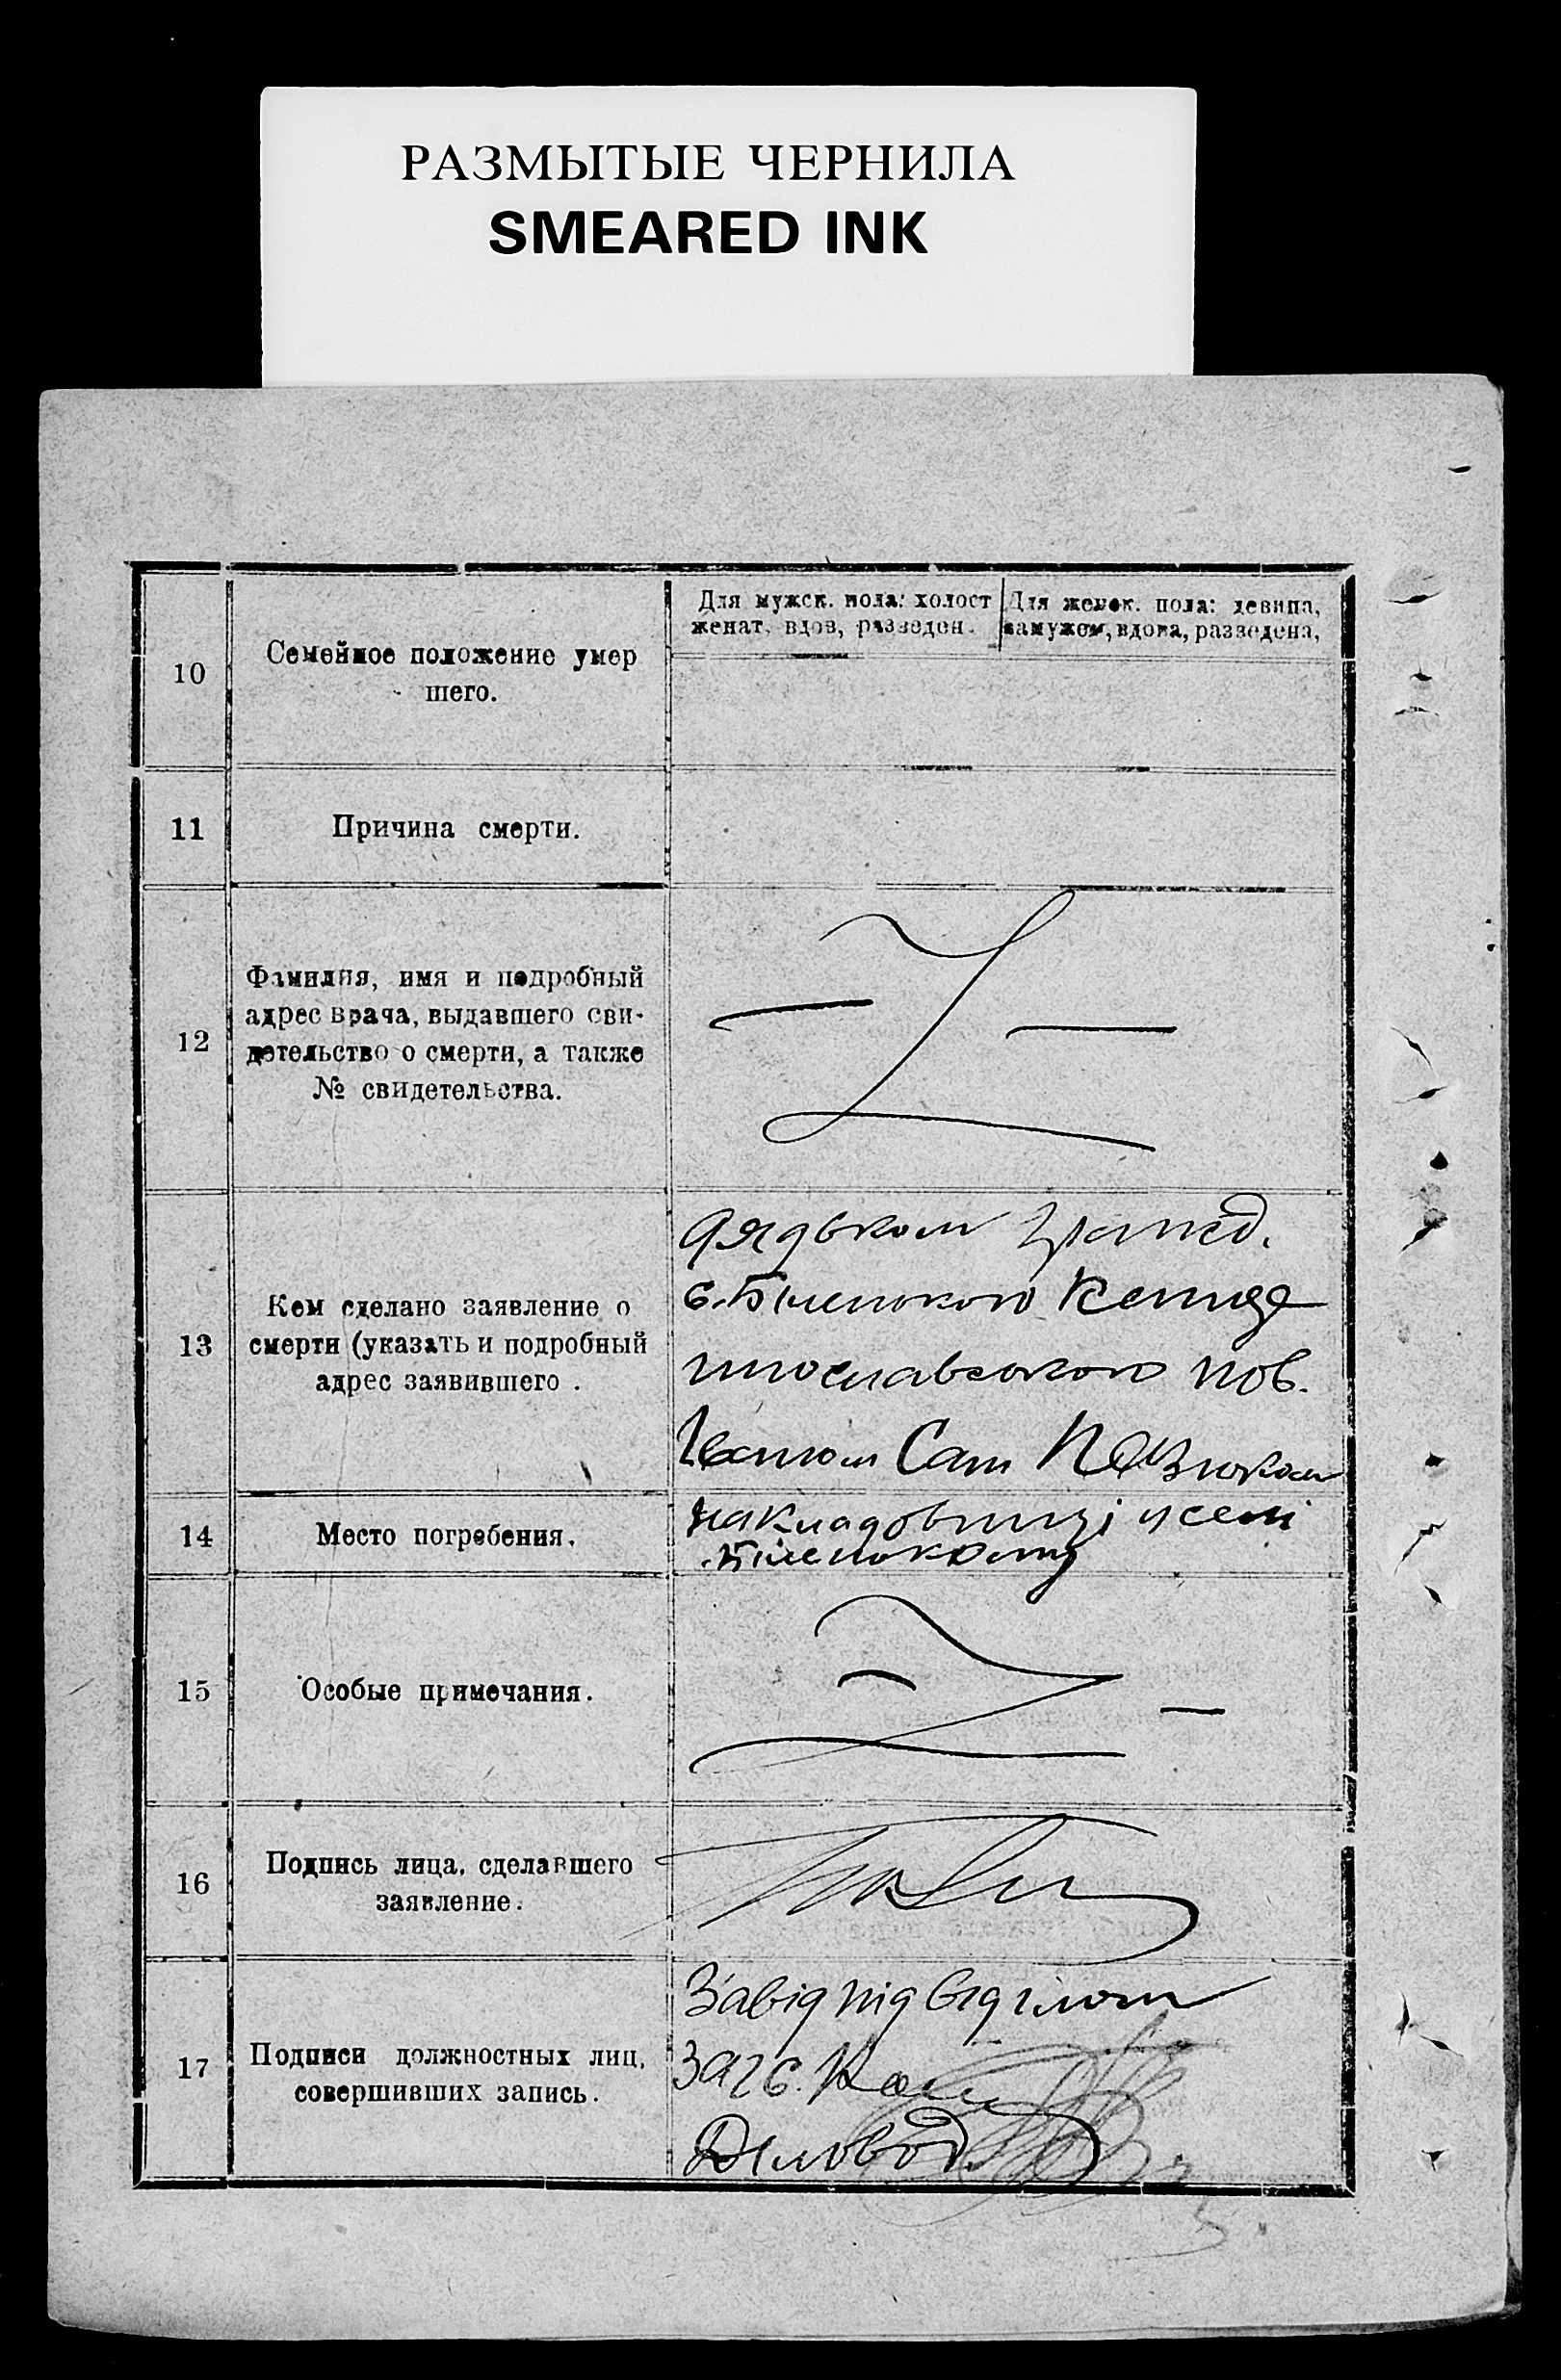 РАЗМЫТЫЕ ЧЕРНИЛА
SMEARED INK
10
Семейное положение умер
шего.
Для мужск. пола: холост
женат, вдов, разведен.
Для женск. пола: девица,
замужем, вдова, разведена,
11
Причина смерти.
12
Фамилия, имя и подробный
адрес врача, выдавшего сви-
детельство о смерти, а также
№ свидетельства.
13
Кем сделано заявление о
смерти (указать и подробный
адрес заявившего .
дядьком
с.
пов.
14
Место погребения.
на кладовищі у селі
15
Особые примечания.
16
Подпись лица, сделавшего
заявление.
17
Подписи должностных лиц,
совершивших запись.
Завід підвідділом
Загс.
Діловод